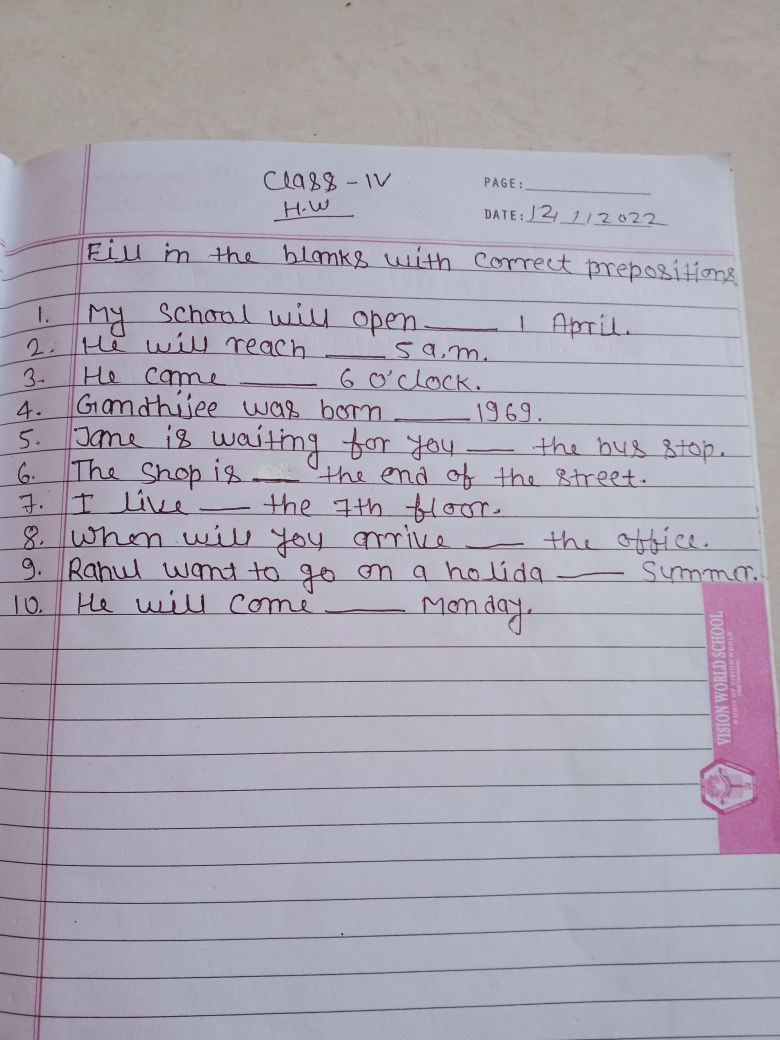 Class - IV
H.W
PAGE:
DATE: 12/1/2022
Fill in the blanks with correct prepositions
1. My school will open ____ 1 April.
2. He will reach ____ 5 a.m.
3. He came ____ 6 o'clock.
4. Gandhijee was born ____ 1969.
5. Jane is waiting for you ____ the bus stop.
6. The shop is ____ the end of the street.
7. I live ____ the 7th floor.
8. When will you arrive ____ the office.
9. Rahul want to go on a holida ____ Summer.
10. He will come ____ Monday.
VISION WORLD SCHOOL
A UNIT OF VISION WORLD